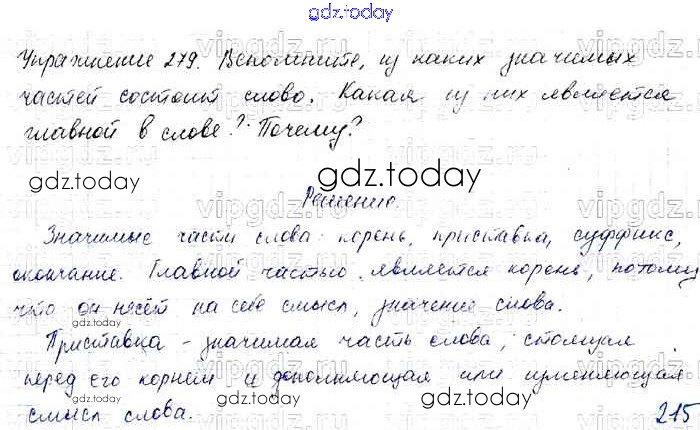 gdz.today
Упражнение 279. Вспомните, из каких значимых
частей состоит слово. Какая из них является
главной в слове? Почему?
gdz.today
gdz.today
gdz.today
Решение.
Значимые части слова: корень, приставка, суффикс,
окончание. Главной частью является корень, потому
что он несёт на себе смысл, значение слова.
gdz.today
gdz.today
Приставка - значимая часть слова, стоящая
перед его корнем и дополняющая или изменяющая
смысл слова.
gdz.today
gdz.today
215